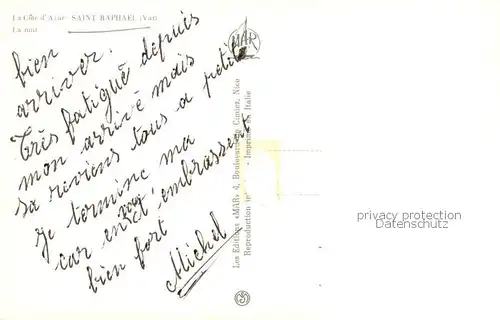 La Côte d'Azur SAINT RAPHAEL (Var)
La nuit
MAR
bien
arriver.
Très fatigué depuis
mon arrivé mais
sa reviens tous a petit
Je termine ma
car en vous embrassent
bien fort
Michel
Les Editions «MAR» 4, Boulevard de Cimiez, Nice
Reproduction in - Imprimé en Italie
privacy protection
Datenschutz